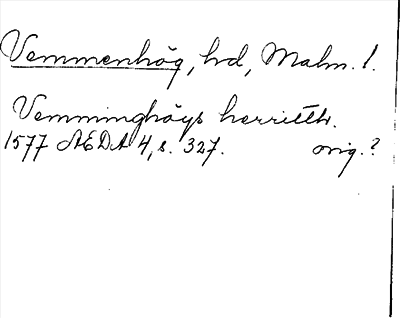 Vemmenhög, hd, Malm. l.
Vemminghöys herritth.
1577 AEDA 4, s. 327. orig.?